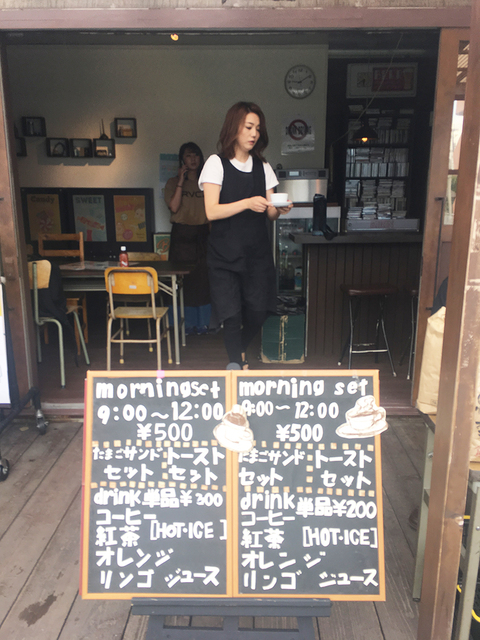 morningset
9:00～12:00
¥500
たまごサンド トースト
セット セット
drink単品¥300
コーヒー
紅茶 [HOT・ICE]
オレンジ
リンゴ ジュース
morning set
9:00～12:00
¥500
たまごサンド トースト
セット セット
drink単品¥200
コーヒー
紅茶 [HOT・ICE]
オレンジ
リンゴ ジュース